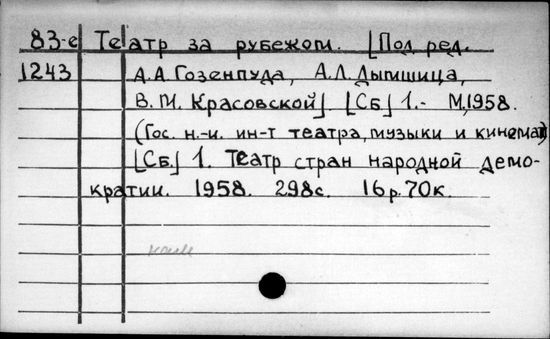 83-е Театр за рубежом. [Под ред.
1243 А.А.Гозенпуда, А.Л.Дымшица,
В.М.Красовской] [Сб] 1.- М,1958.
(Гос. н.-и. ин-т театра, музыки и кинемат)
[Сб] 1. Театр стран народной демо-
кратии. 1958. 298с. 16р.70к.